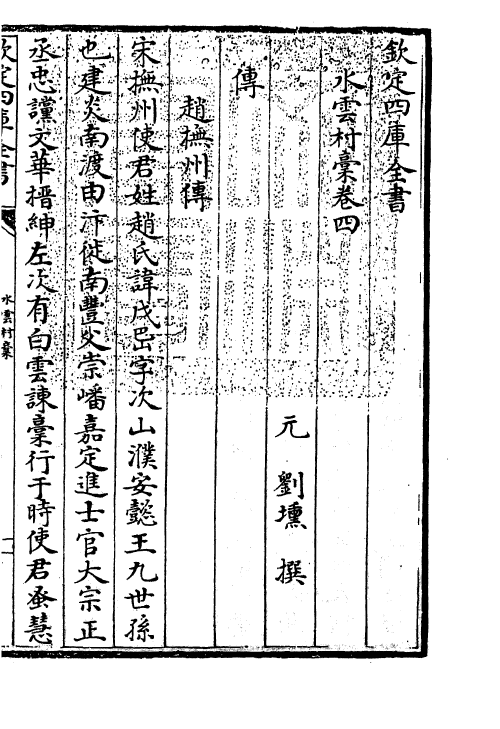 欽定四庫全書
水雲村稾卷四
元 劉壎 撰
傳
趙撫州傳
宋撫州使君姓趙氏諱戊㟭字次山濮安懿王九世孫
也建炎南渡由汴徙南豐父崇嶓嘉定進士官大宗正
丞忠讜文華搢紳左次有白雲諫稾行于時使君蚤慧
欽定四庫全書
水雲村稾
一